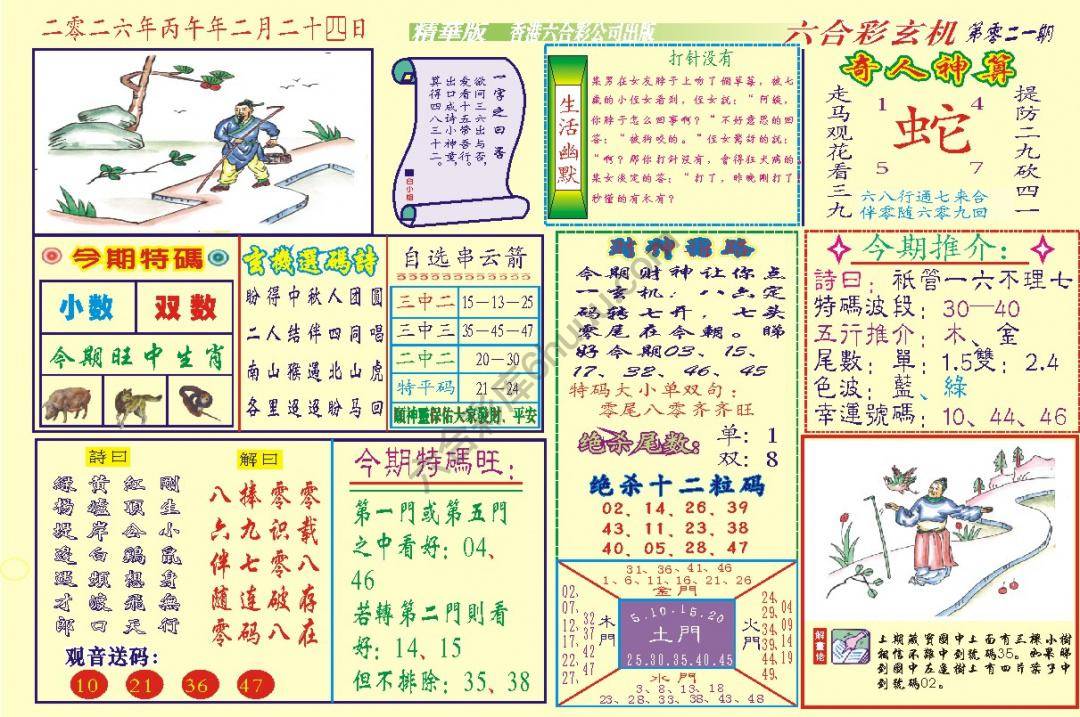 二零二六年丙午年二月二十四日
精華版 香港六合彩公司出版
六合彩玄机 第零二一期
一字之曰:吝
欲问三六出与否,
爱看十五带吾行。
出口成诗小神童,
算得四八三十二。
白小姐
生活幽默
打针没有
某男在女友脖子上吻了個草莓,被七
歲的小侄女看到,侄女說:“阿姨,
你脖子怎么回事啊?”不好意思的回
答:“被狗咬的。”侄女驚訝的說:
“啊?那你打針没有,會得狂犬病的。
某女淡定的答:“打了,昨晚剛打了
秒懂的有木有?
奇人神算
走马观花看三九
1 4
蛇
5 7
提防二九砍四一
六八行通七来合
伴零随六零九回
今期特碼
小数 双数
今期旺中生肖
玄機選碼詩
盼得中秋人团圆
二人结伴四同唱
南山猴遇北山虎
各里迢迢盼马回
自选串云箭
三中二 15—13—25
三中三 35—45—47
二中二 20—30
特平码 21—24
願神靈保佑大家發財、平安
財神密路
今期财神让你点
一玄机:八六定
码转七开,七头
零尾在今朝。睇
好今期03、15、
17、32、46、45
特码大小单双句:
零尾八零齐齐旺
绝杀尾数: 单:1
双:8
绝杀十二粒码
02、14、26、39
43、11、23、38
40、05、28、47
今期推介:
詩曰:祇管一六不理七
特碼波段:30—40
五行推介:木、金
尾數:單:1.5雙:2.4
色波:藍、綠
幸運號碼:10、44、46
詩曰
剛生小鼠身無行
红顶公鷄想飛天
黄壚岸白頻嫂口
绿楊堤边遇才郎
解曰
零载八存在
零识零破八
捧九七连码
八六伴随零
观音送码:
10 21 36 47
今期特碼旺:
第一門或第五門
之中看好:04、
46
若轉第二門則看
好:14、15
但不排除:35、38
31、36、41、46
1、6、11、16、21、26
金門
02、07、12、17、22、27、
32 37 42 47
木門
5.10.15.20
土門
25.30.35.40.45
火門
24、29、34、39、44、49、
04 09 14 19
水門
3、8、13、18
23、28、33、38、43、48
解畫佬
上期藏寶圖中上面有三棵小樹
相信不難中到號碼35。如果睇
到圖中左邊樹上有四片葉子中
到號碼02。
六合彩库6htuku.com